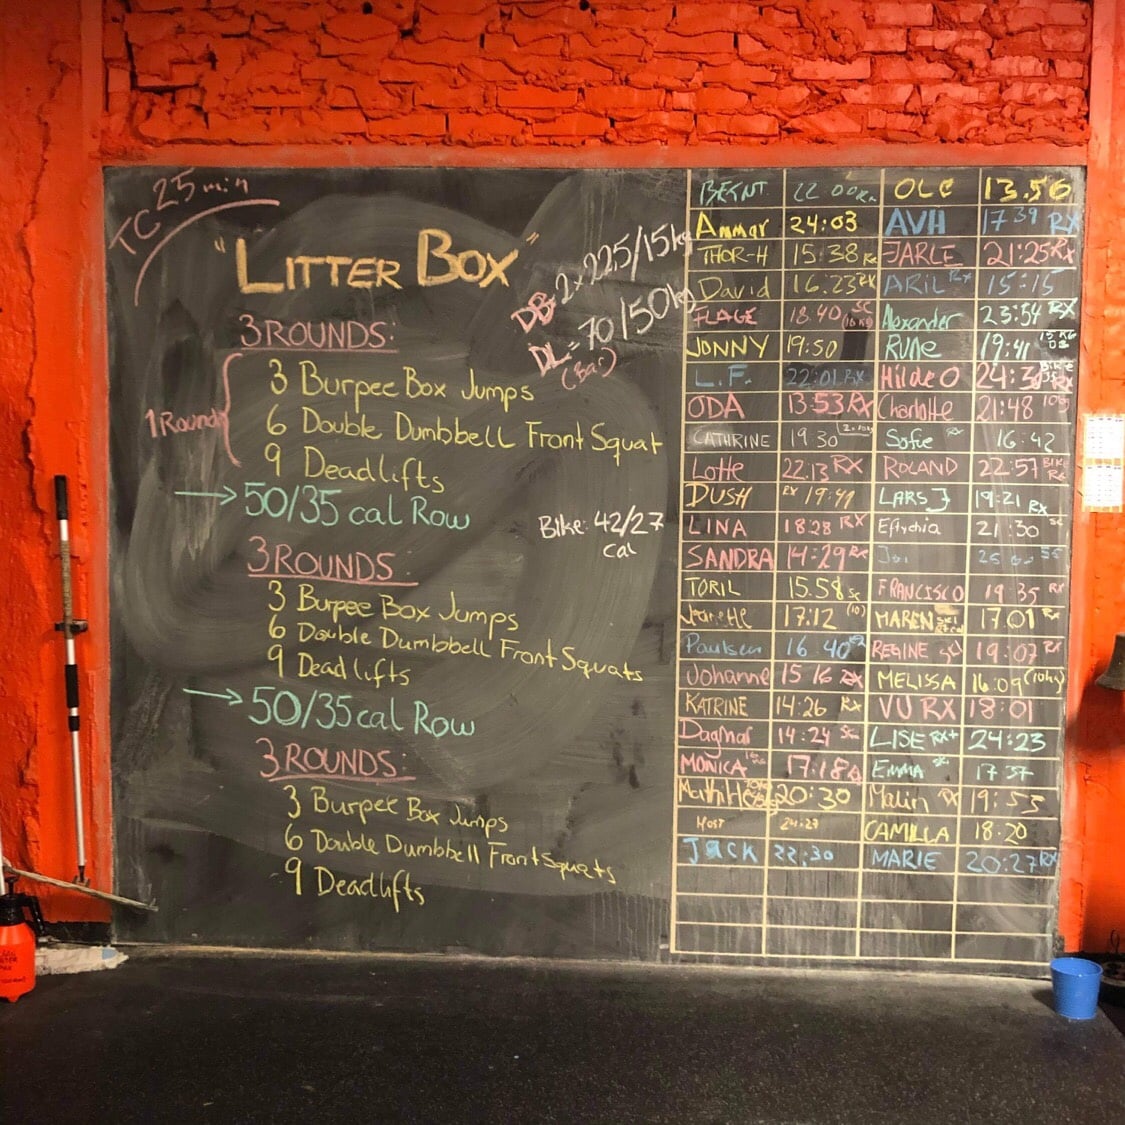 TC 25 min
"LITTER BOX"
DB: 2 x 22.5/15 kg
DL = 70/50 kg
3 ROUNDS:
1 Round
3 Burpee Box Jumps
6 Double Dumbbell Front Squat
9 Deadlifts
→ 50/35 cal Row
Bike: 42/27
cal
3 ROUNDS:
3 Burpee Box Jumps
6 Double Dumbbell Front Squats
9 Deadlifts
→ 50/35 cal Row
3 ROUNDS:
3 Burpee Box Jumps
6 Double Dumbbell Front Squats
9 Deadlifts
22 00 OLE 13.56
Ammar 24:03 AVH 17 39 RX
THOR-H 15 38 Rx JARLE 21:25 Rx
David 16.23 RX ARIL Rx 15:15
18.40 SC Alexander 23:54 RX
JONNY 19:50 RUNE 19:41
L.F. 22:01 RX Hilde O
ODA 13:53 RX Charlotte 21:48
CATHRINE 19 30 Sofie 16:42
Lotte 22:13 RX ROLAND 22:57 BIKE
DUSH RX 19:41 LARS J 19:21 RX
LINA 18:28 RX Eftychia 21:30 sc
SANDRA 14:29 Rx
TORIL 15.58 sc FRANCISCO 19 35 RX
Jeanette 17:12 (10) MAREN 17.01 Rx
Paulsen 16:40 REGINE 19:07 RX
Johanne 15 16 RX MELISSA 16:09 (10kg)
KATRINE 14:26 Rx VU RX 18:01
Dagmar 14:24 Sc LISE RX+ 24:23
MONICA 17:18 EMMA Sc 17 37
20:30 Malin RX 19:53
MOST 24:27 CAMILLA 18:20
JACK 22:30 MARIE 20:27 RX